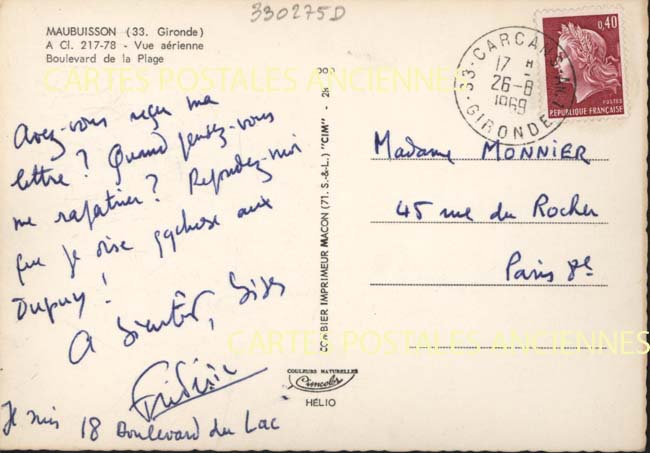 330275D
MAUBUISSON (33. Gironde)
A Cl. 217-78 - Vue aérienne
Boulevard de la Plage
CARTES POSTALES ANCIENNES
Avez-vous reçu ma
lettre ? Quand pensez-vous
me rapatrier ? Répondez-moi
que je dise qqchose aux
Dupuy !
A bientôt, Bises
Frédéric
Je suis 18 Boulevard du Lac
COMBIER IMPRIMEUR MACON (71. S.-&-L.) "CIM"
COULEURS NATURELLES
Cimcolor
HÉLIO
33-CARCANS-ANN.
17 H
26-8
1969
GIRONDE
0,40
POSTES
REPUBLIQUE FRANÇAISE
Madame MONNIER
45 rue du Rocher
Paris 8e
CARTES POSTALES ANCIENNES